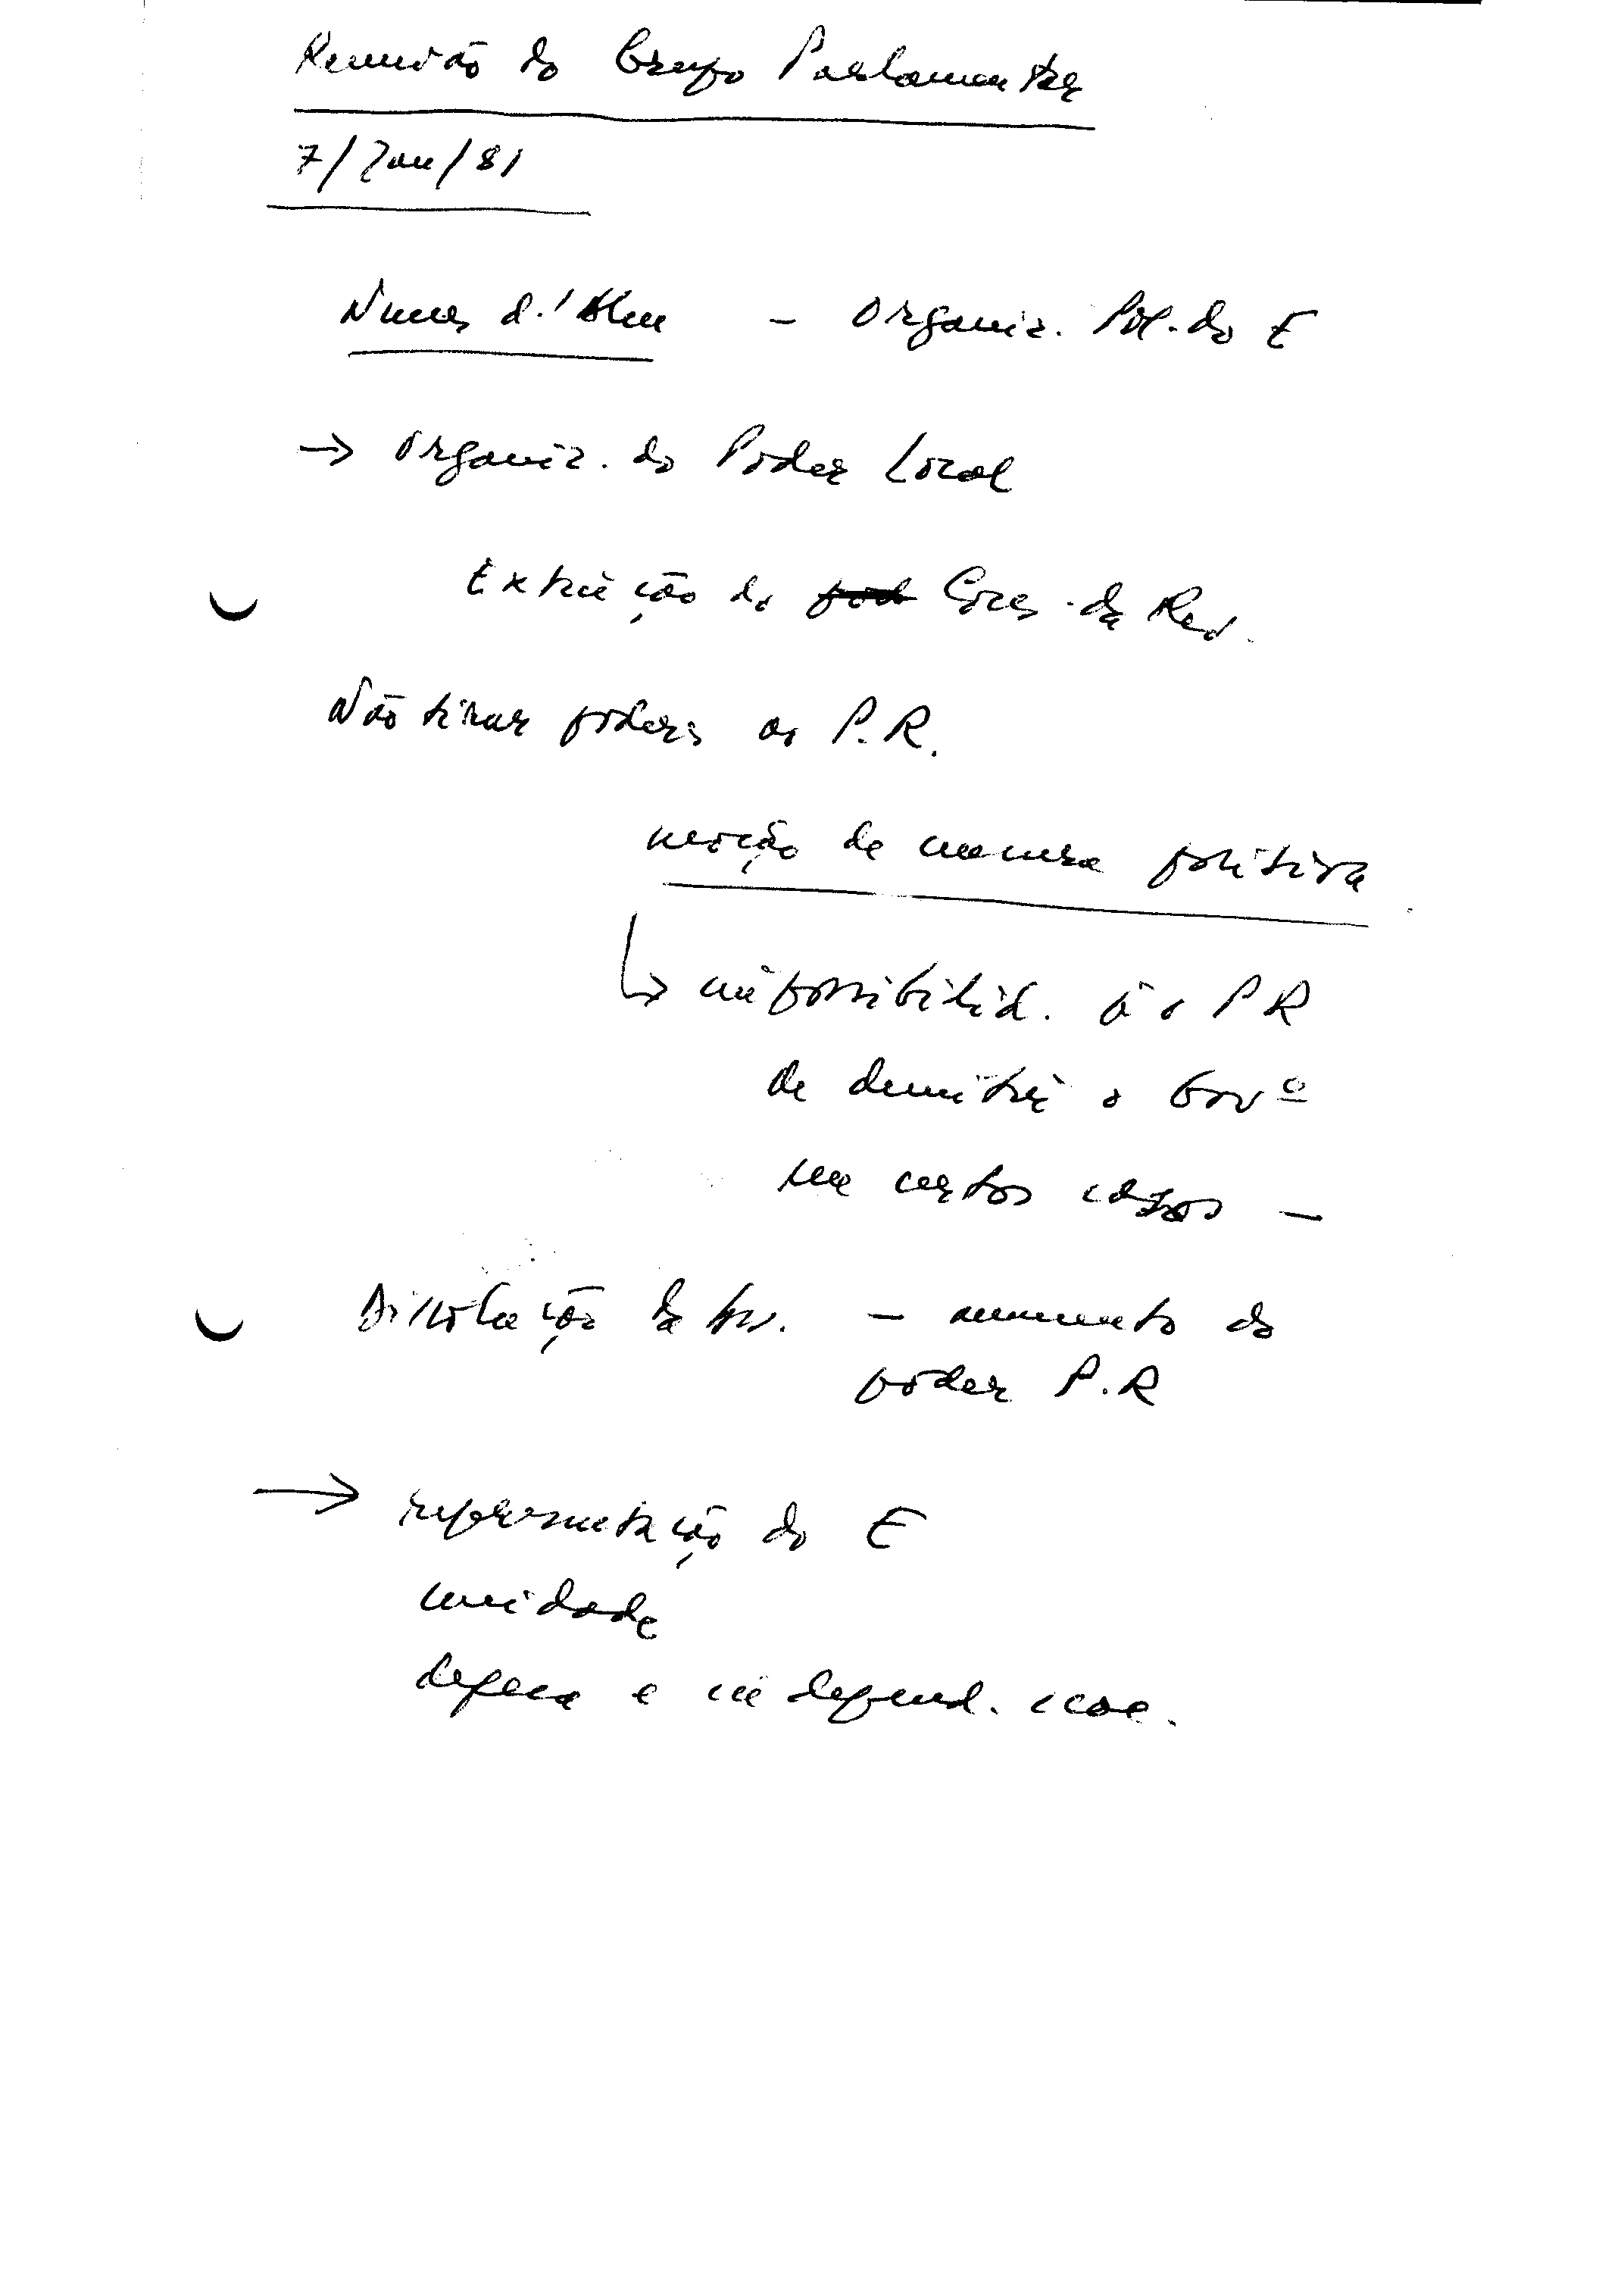 Reunião do Grupo Parlamentar
7/Jan/81
Nunes d.' Alm – Organiz. Pol. do E
→ Organiz. do Poder Local
Extinção do Cons. da Rev.
Não tirar poderes ao P.R.
moção de censura política
↳ impossibilid. p/ o PR
de demitir o Govº
em certos casos –
Dissolução da Ass. – aumento do
poder P.R
→ representação do E
unidade
defesa e independ. nac.